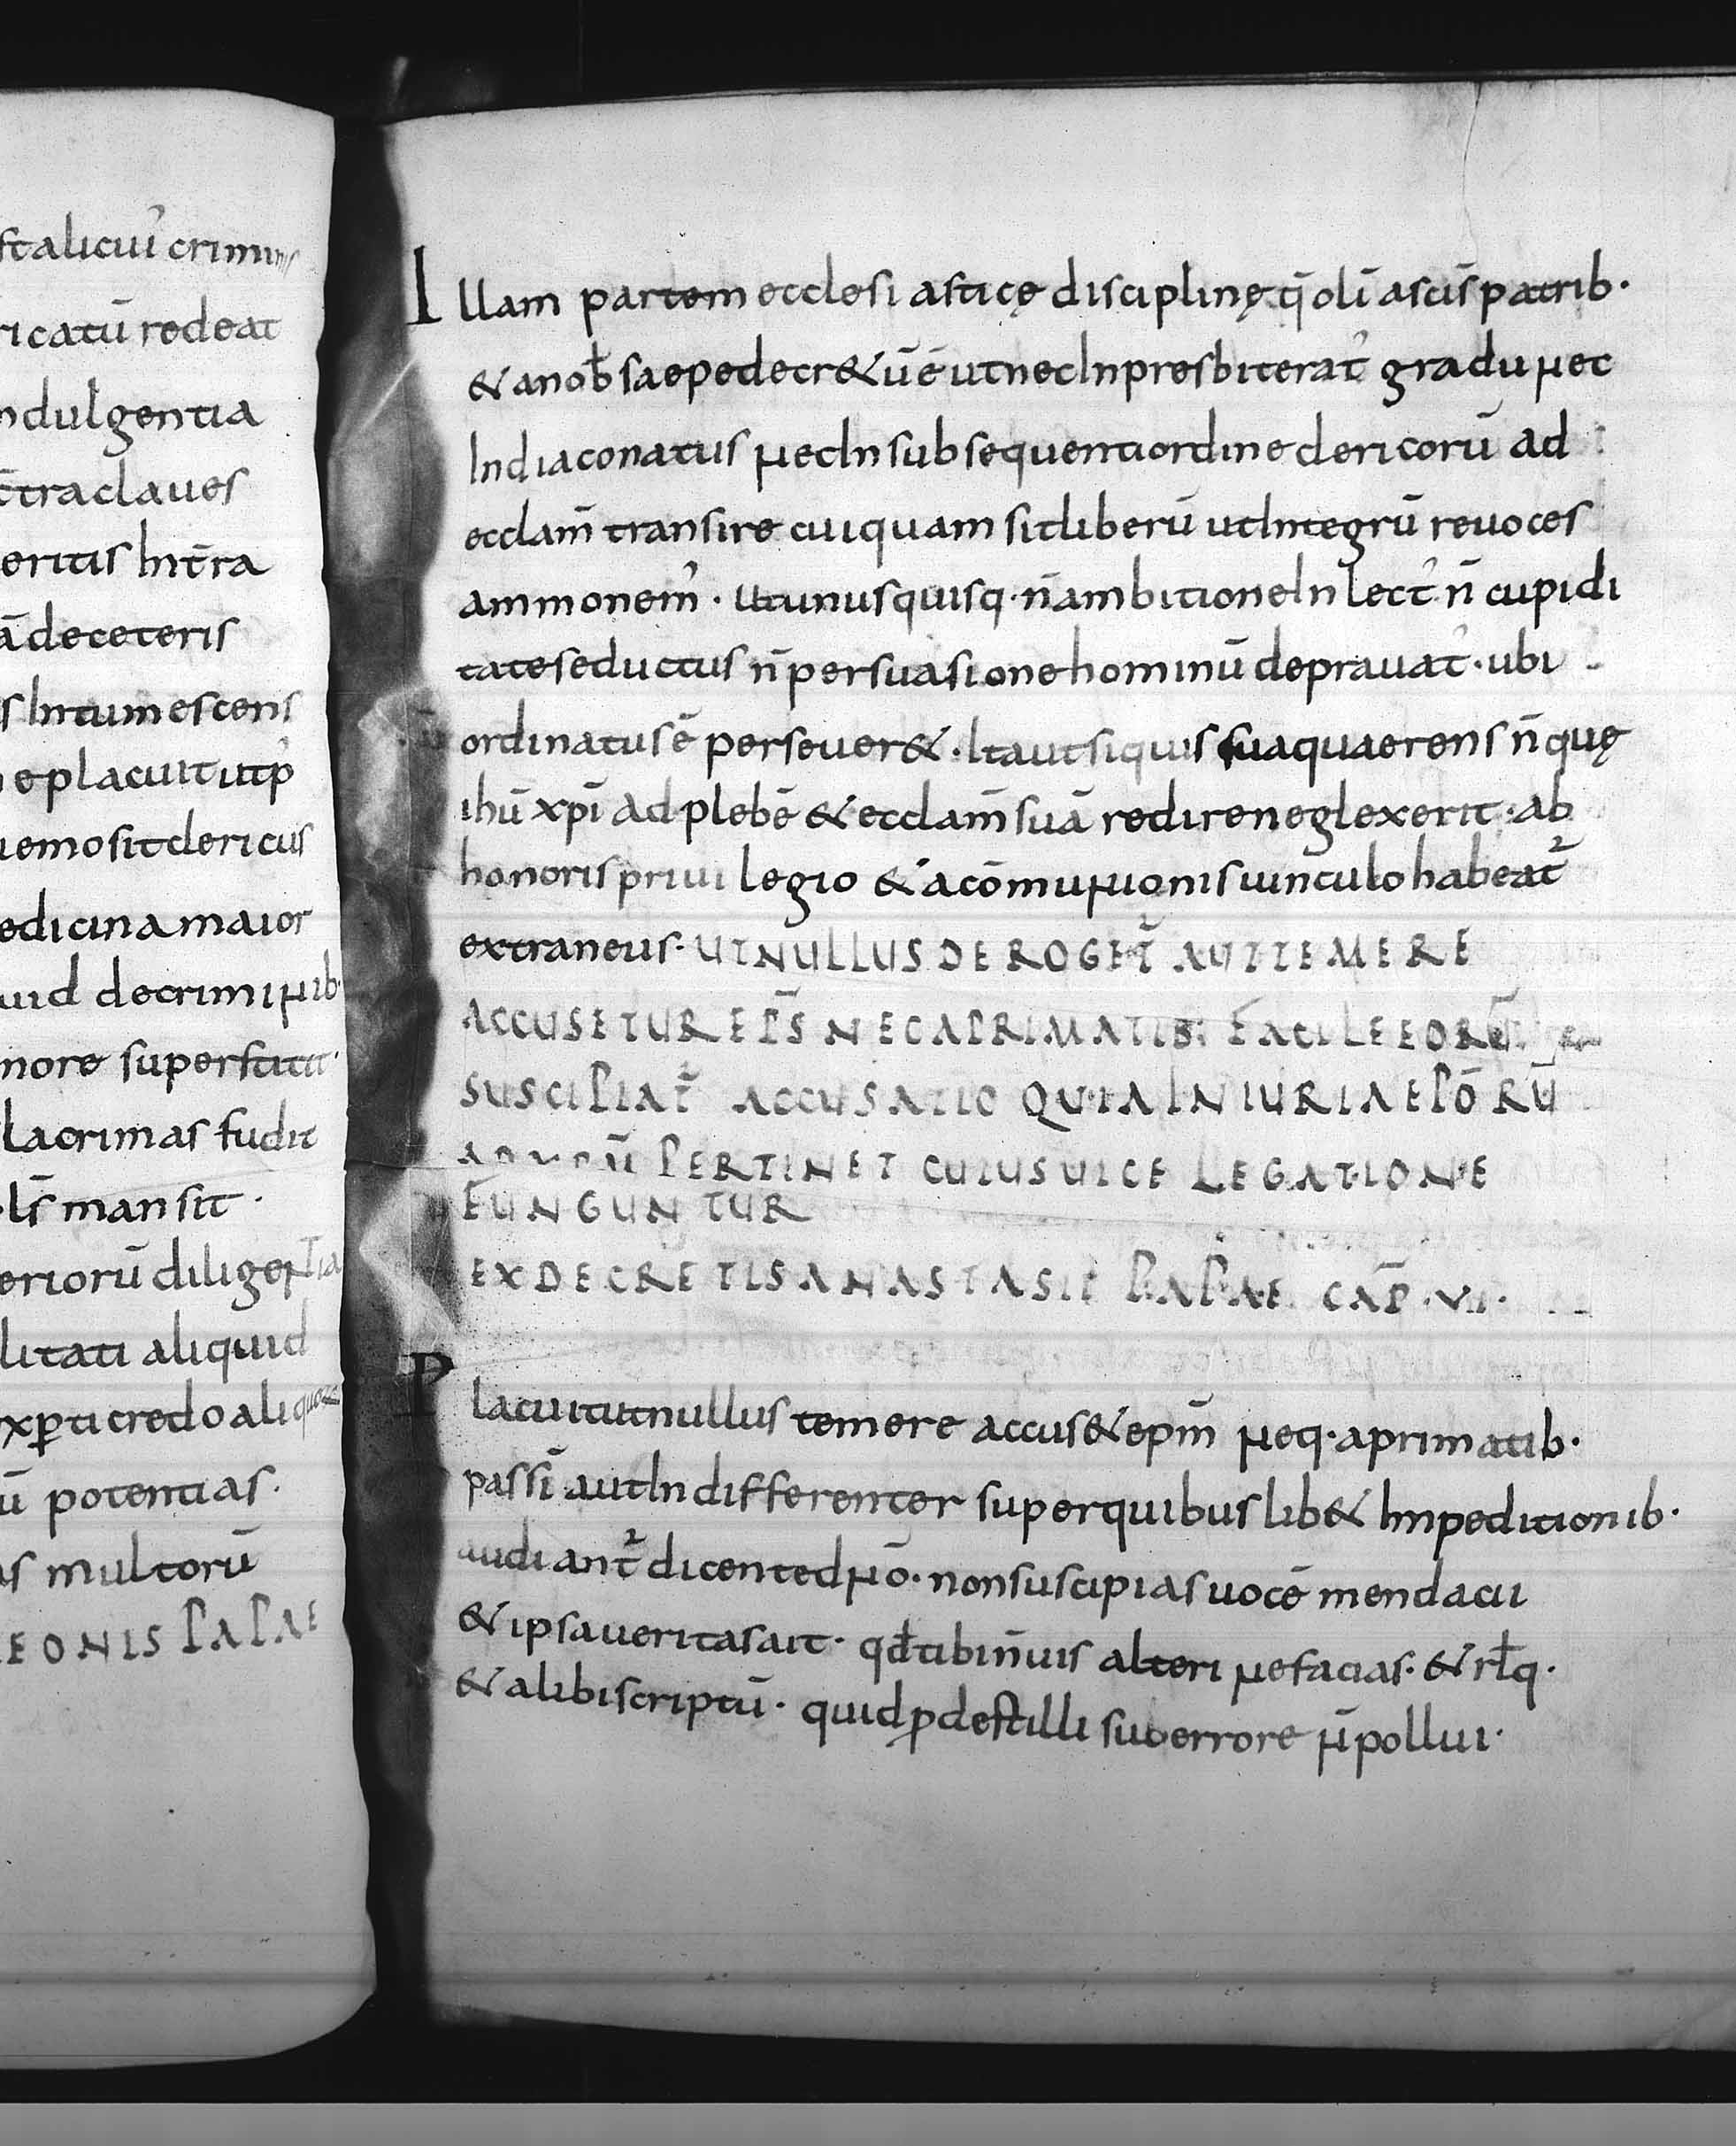 stalicui᾽ criminis
ricatū redeat
ndulgentia
c̄traclaues
eritis Int̄ra
ā deceteris
s Intumescens
e placuit utp᾽
nemo sit clericus
edicina maior
uid decriminib·
more superstitit·
lacrimas fudit
·ls̄ mansit ·
eriorū diligentia
litati aliquid
xꝑti credo aliquos
ū potentias·
as multorū
LEONIS PAPAE
Illam partem ecclesi asticę disciplinę q̄ oli᷒ as̄cīs patrib·
& a nob̄ saepe decr&ū ē ut nec In presbiterat᾽ gradu Nec
In diaconatus Nec In sub sequenti ordine clericorū ad
eccłam̄ transire cuiquam sit liberū ut Integrū reuoces
ammonem᾽ · Ut unusquisq· n̄ ambitione In lect᾽ n̄ cupidi
tate seductus n̄ persuasione hominū deprauat᾽ · ubi
ordinatus ē perseuer& · Ita ut siquis sua quaerens n̄ quę
ihū xp̄i ad plebē & ecclam̄ suā redire neglexerit · ab
honoris priui legio & a cōmuNionis uinculo habeat᷑
extraneus · UT NULLUS DEROGET᷑ AUT TEMERE
ACCUSETUR EP̄S NEC A PRIMATIB· FACILE EORŪ
SUSCIPIAT᷑ ACCUSATIO QUIA INIURIA EPŌRŪ
PERTINET CUIUS UICE LEGATIONE
FUNGUNTUR
EX DECRETIS ANASTASII PAPAE CAP̄ · VI ·
Placuit ut nullus temere accus& epm̄ Neq· a primatib·
passī aut In differenter super quibus lib& Inpeditionib·
audiant᷑ dicente dNō· non suscipias uocē mendacii
& ipsa ueritas ait · qđ tibi n̄ uis alteri Ne facias· & rłq·
& alibi scriptū · quid ꝓdest illi suo errore N̄ pollui·